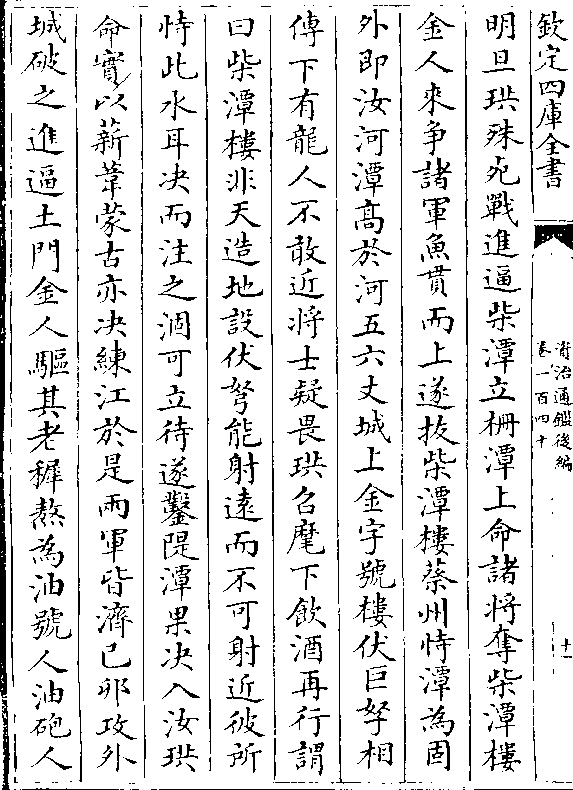 欽定四庫全書
資治通鑑後編
卷一百四十
十一
明旦珙殊死戰進逼柴潭立柵潭上命諸將奪柴潭樓
金人來争諸軍魚貫而上遂拔柴潭樓蔡州恃潭為固
外即汝河潭高於河五六丈城上金字號樓伏巨弩相
傳下有龍人不敢近將士疑畏珙召麾下飲酒再行謂
曰柴潭樓非天造地設伏弩能射逺而不可射近彼所
恃此水耳决而注之涸可立待遂鑿隄潭果决入汝珙
命實以薪葦蒙古亦决練江於是兩軍皆濟己卯攻外
城破之進逼土門金人驅其老穉熬為油號人油砲人